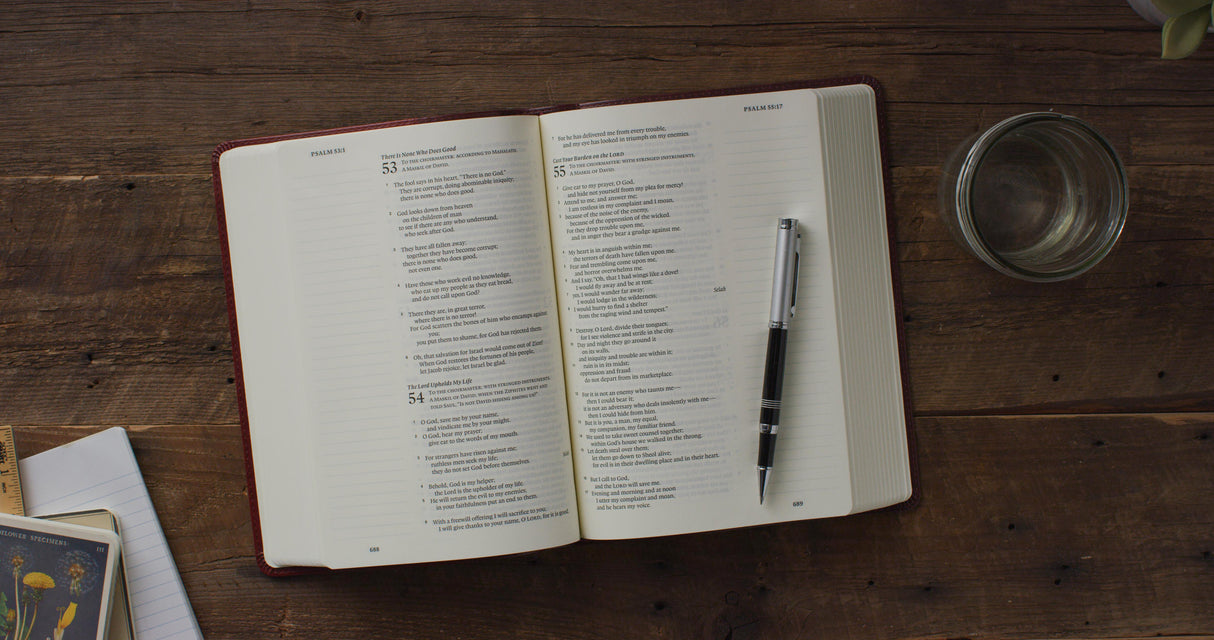 PSALM 53:1
There Is None Who Does Good
53 TO THE CHOIRMASTER: ACCORDING TO MAHALATH.
A MASKIL OF DAVID.
1 The fool says in his heart, "There is no God."
They are corrupt, doing abominable iniquity;
there is none who does good.
2 God looks down from heaven
on the children of man
to see if there are any who understand,
who seek after God.
3 They have all fallen away;
together they have become corrupt;
there is none who does good,
not even one.
4 Have those who work evil no knowledge,
who eat up my people as they eat bread,
and do not call upon God?
5 There they are, in great terror,
where there is no terror!
For God scatters the bones of him who encamps against
you;
you put them to shame, for God has rejected them.
6 Oh, that salvation for Israel would come out of Zion!
When God restores the fortunes of his people,
let Jacob rejoice, let Israel be glad.
The Lord Upholds My Life
54 TO THE CHOIRMASTER: WITH STRINGED INSTRUMENTS.
A MASKIL OF DAVID, WHEN THE ZIPHITES WENT AND
TOLD SAUL, "IS NOT DAVID HIDING AMONG US?"
1 O God, save me by your name,
and vindicate me by your might.
2 O God, hear my prayer;
give ear to the words of my mouth.
3 For strangers have risen against me;
ruthless men seek my life;
they do not set God before themselves.
4 Behold, God is my helper;
the Lord is the upholder of my life.
5 He will return the evil to my enemies;
in your faithfulness put an end to them.
6 With a freewill offering I will sacrifice to you;
I will give thanks to your name, O LORD, for it is good.
688
PSALM 55:17
7 For he has delivered me from every trouble,
and my eye has looked in triumph on my enemies.
Cast Your Burden on the LORD
55 TO THE CHOIRMASTER: WITH STRINGED INSTRUMENTS.
A MASKIL OF DAVID.
1 Give ear to my prayer, O God,
and hide not yourself from my plea for mercy!
2 Attend to me, and answer me;
I am restless in my complaint and I moan,
3 because of the noise of the enemy,
because of the oppression of the wicked.
For they drop trouble upon me,
and in anger they bear a grudge against me.
4 My heart is in anguish within me;
the terrors of death have fallen upon me.
5 Fear and trembling come upon me,
and horror overwhelms me.
6 And I say, "Oh, that I had wings like a dove!
I would fly away and be at rest;
7 yes, I would wander far away;
I would lodge in the wilderness; Selah
8 I would hurry to find a shelter
from the raging wind and tempest."
9 Destroy, O Lord, divide their tongues;
for I see violence and strife in the city.
10 Day and night they go around it
on its walls,
and iniquity and trouble are within it;
11 ruin is in its midst;
oppression and fraud
do not depart from its marketplace.
12 For it is not an enemy who taunts me—
then I could bear it;
it is not an adversary who deals insolently with me—
then I could hide from him.
13 But it is you, a man, my equal,
my companion, my familiar friend.
14 We used to take sweet counsel together;
within God's house we walked in the throng.
15 Let death steal over them;
let them go down to Sheol alive;
for evil is in their dwelling place and in their heart.
16 But I call to God,
and the LORD will save me.
17 Evening and morning and at noon
I utter my complaint and moan,
and he hears my voice.
689
SPECIMENS:
III